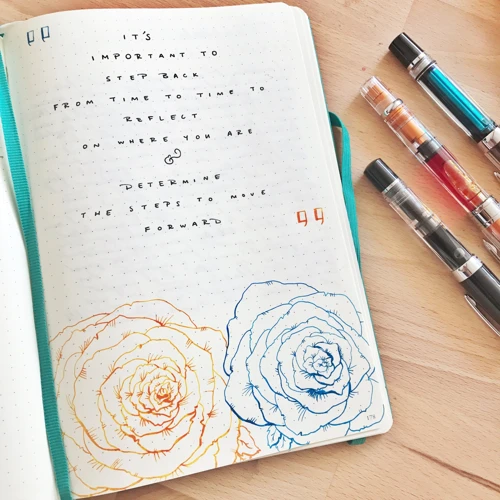 "
IT'S
IMPORTANT TO
STEP BACK
FROM TIME TO TIME TO
REFLECT
ON WHERE YOU ARE
&
DETERMINE
THE STEPS TO MOVE
FORWARD
"